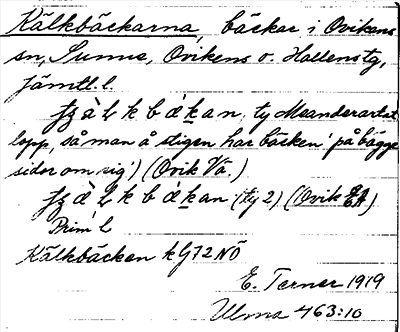 Kälkbäckarna, bäckar i Ovikens
sn, Sunne, Ovikens o. Hallens tg,
Jämtl. l.
ty Meanderartat
lopp, så man å stigen har bäcken ' på bägge
sidor om sig') (Ovik Vä.)
(ty 2) (Ovik
Prim' l
Kälkbäcken k G72 NÖ
E. Terner 1919
Ulma 463:10